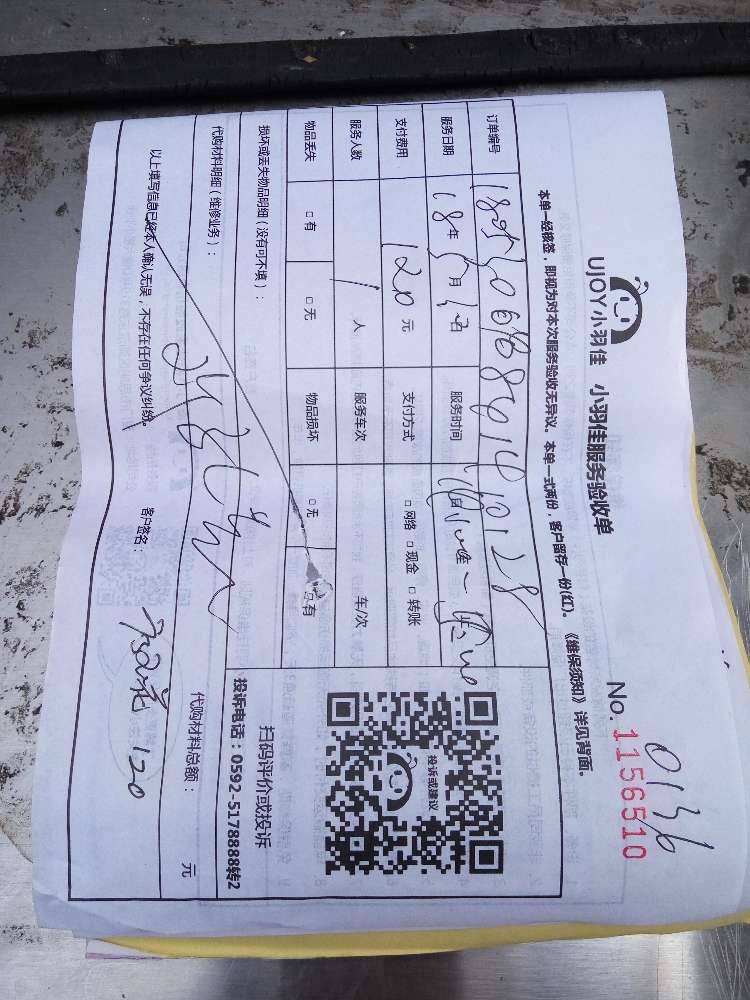 UJOY小羽佳 小羽佳服务验收单
No. 1156510
0136
本单一经核签，即视为对本次服务验收无异议。本单一式两份，客户留存一份(红)。《维保须知》详见背面。
订单编号
服务日期 18年5月 日 服务时间
支付费用 120元 支付方式 □网络 □现金 □转账
服务人数 1人 服务车次 车/次
物品丢失 □有 □无 物品损坏 □无 □有
投诉或建议
扫码评价或投诉
投诉电话：0592-5178888转2
损坏或丢失物品明细（没有可不填）：
代购材料明细（维修业务）： 代购材料总额： 元
以上填写信息已经本人确认无误，不存在任何争议纠纷。 客户签名： 120